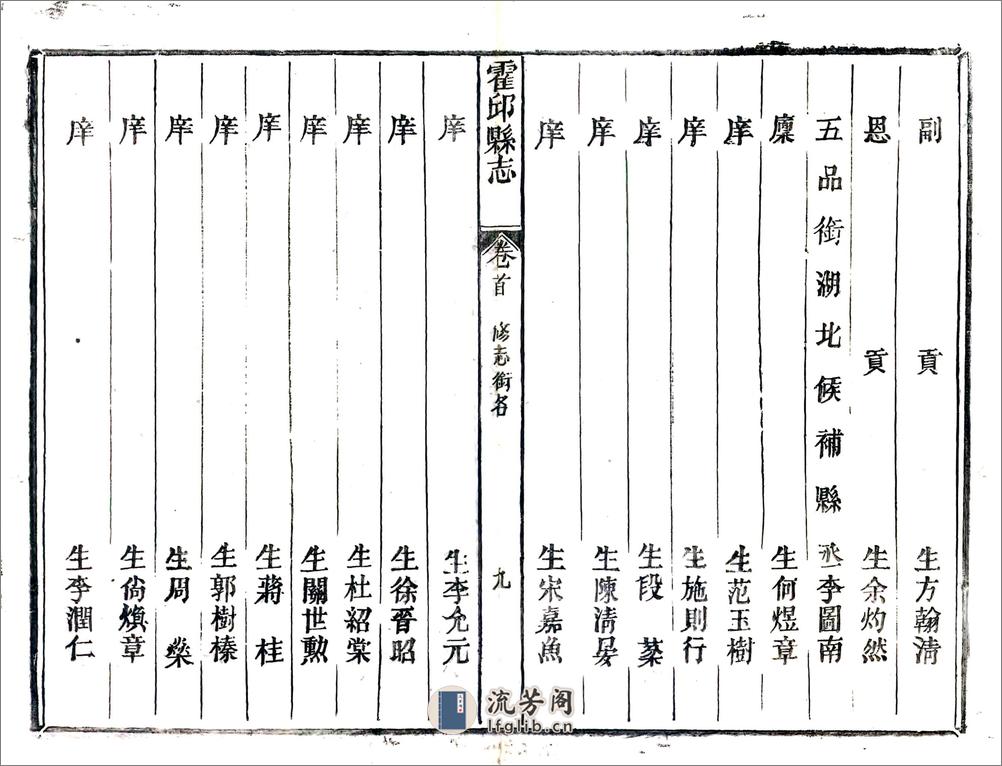 副貢生方翰清
恩貢生余灼然
五品銜湖北候補縣丞李圖南
廩生何煜章
庠生范玉樹
庠生施則行
庠生段棻
庠生陳清晏
庠生宋嘉魚
霍邱縣志
卷首 修志銜名
九
庠生李允元
庠生徐晉昭
庠生杜紹棠
庠生關世勲
庠生蔣桂
庠生郭樹榛
庠生周榮
庠生尙煥章
庠生李潤仁
流芳阁
lfglib.cn